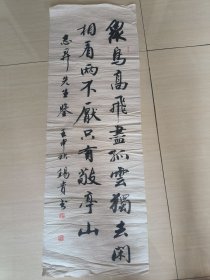 眾鳥高飛盡孤雲獨去閑
相看兩不厭只有敬亭山
志昇先生鑒 壬申秋 錫青书